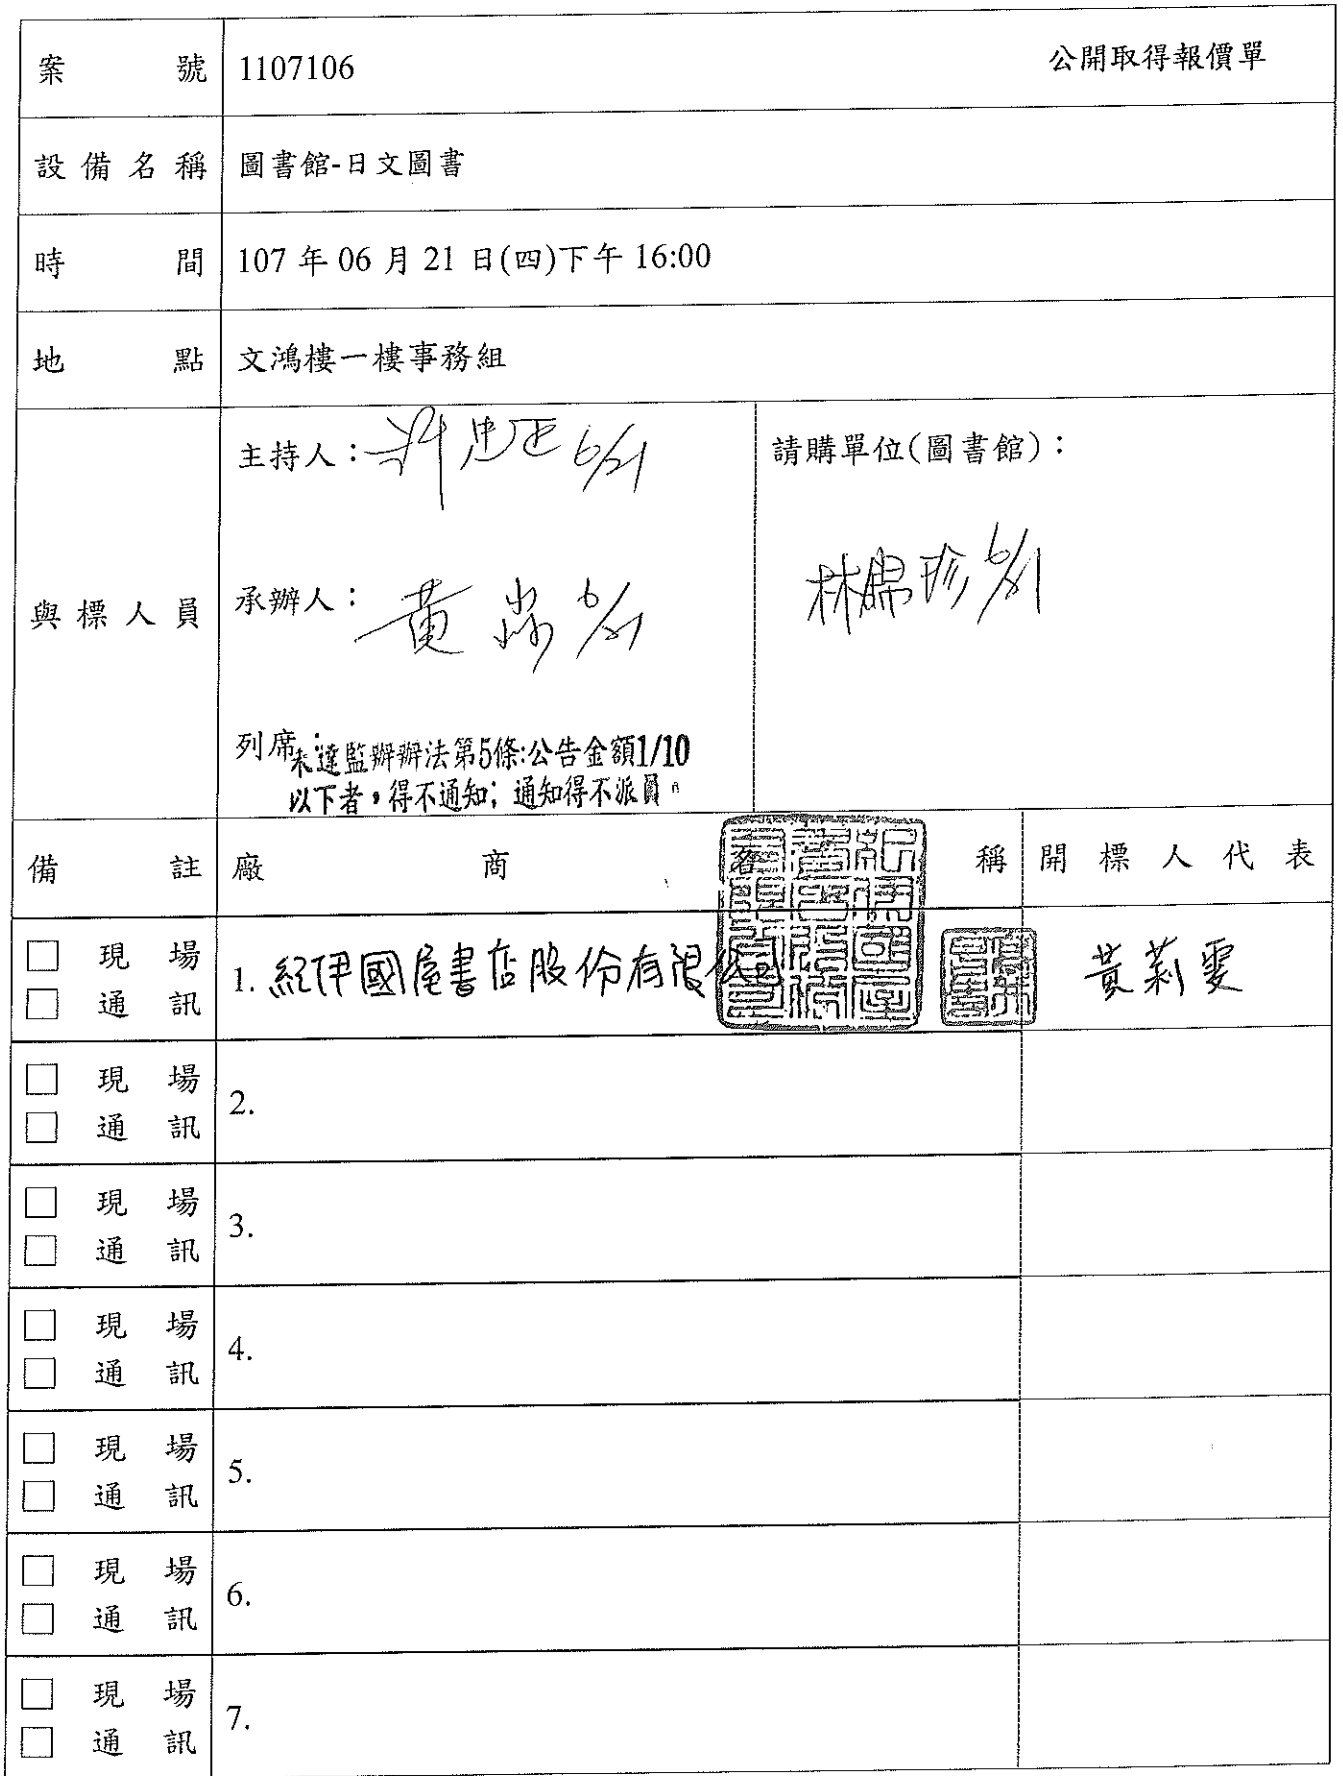 案號 1107106 公開取得報價單
設備名稱 圖書館-日文圖書
時間 107 年 06 月 21 日(四)下午 16:00
地點 文鴻樓一樓事務組
與標人員
主持人：許忠正 6/21
請購單位(圖書館)：
承辦人：黃 6/21
林 珍 6/21
列席：
未達監辦辦法第5條:公告金額1/10
以下者，得不通知；通知得不派員。
備註 廠商名稱 開標人代表
□ 現場
□ 通訊
1. 紀伊國屋書店股份有限公司 黃莉雯
□ 現場
□ 通訊
2.
□ 現場
□ 通訊
3.
□ 現場
□ 通訊
4.
□ 現場
□ 通訊
5.
□ 現場
□ 通訊
6.
□ 現場
□ 通訊
7.